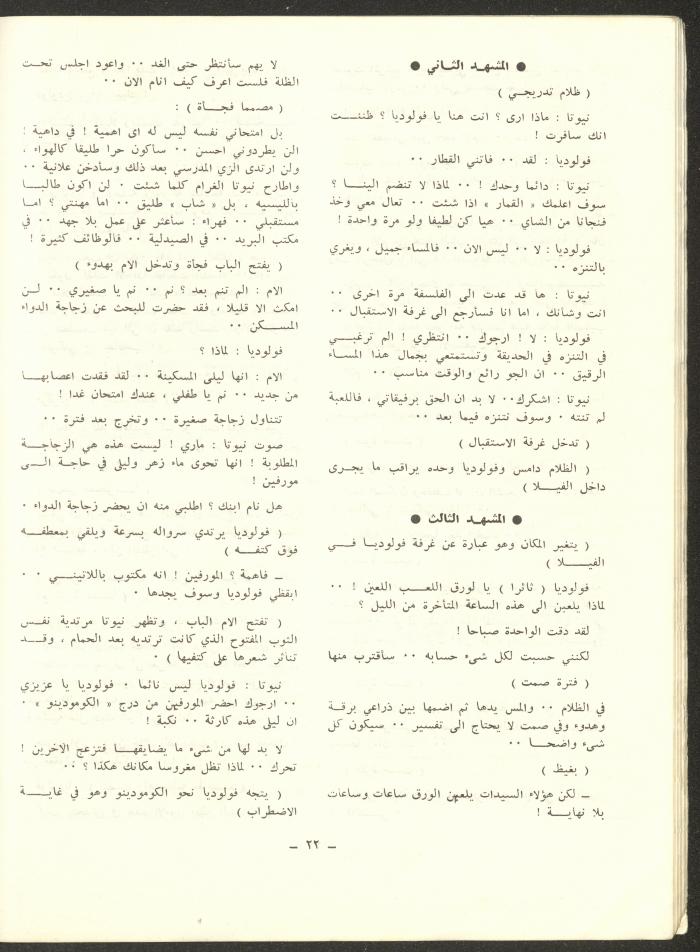 ● المشهد الثاني ●
( ظلام تدريجي )
نيوتا : ماذا ارى ؟ انت هنا يا فولوديا ؟ ظننت
انك سافرت !
فولوديا : لقد ٠٠ فاتني القطار ٠٠
نيوتا : دائما وحدك ! ٠٠ لماذا لا تنضم الينا ؟
سوف اعلمك « القمار » اذا شئت ٠٠ تعال معي وخذ
فنجانا من الشاي ٠٠ هيا كن لطيفا ولو مرة واحدة !
فولوديا : لا ٠٠ ليس الان ٠٠ فالمساء جميل ، ويغري
بالتنزه ٠٠
نيوتا : ها قد عدت الى الفلسفة مرة اخرى ٠٠
انت وشانك ، اما انا فسارجع الى غرفة الاستقبال ٠٠
فولوديا : لا ! ارجوك ٠٠ انتظري ! الم ترغبي
في التنزه في الحديقة وتستمتعي بجمال هذا المساء
الرقيق ٠٠ ان الجو رائع والوقت مناسب ٠٠
نيوتا : اشكرك٠٠ لا بد ان الحق برفيقاتي ، فاللعبة
لم تنته ٠ وسوف نتنزه فيما بعد ٠٠
( تدخل غرفة الاستقبال )
( الظلام دامس وفولوديا وحده يراقب ما يجرى
داخل الفيلا )
● المشهد الثالث ●
( يتغير المكان وهو عبارة عن غرفة فولوديا في
الفيلا )
فولوديا ( ثائرا ) يا لورق اللعب اللعين ! ٠٠
لماذا يلعبن الى هذه الساعة المتأخرة من الليل ؟
لقد دقت الواحدة صباحا !
لكنني حسبت لكل شىء حسابه ٠٠ سأقترب منها
( فترة صمت )
في الظلام ٠٠ والمس يدها ثم اضمها بين ذراعي برقة
وهدوء وفي صمت لا يحتاج الى تفسير ٠٠ سيكون كل
شىء واضحا ٠٠
( بغيظ )
ـ لكن هؤلاء السيدات يلعبن الورق ساعات وساعات
بلا نهاية !
لا يهم سأنتظر حتى الغد ٠٠ واعود اجلس تحت
الظلة فلست اعرف كيف انام الان ٠٠
( مصمما فجأة ) :
بل امتحاني نفسه ليس له اى اهمية ! في داهية !
الن يطردوني احسن ٠٠ ساكون حرا طليقا كالهواء ،
ولن ارتدى الزي المدرسي بعد ذلك وسأدخن علانية ٠٠
واطارح نيوتا الغرام كلما شئت ٠ لن اكون طالبا
بالليسيه ، بل « شاب » طليق ٠٠ اما مهنتي ؟ اما
مستقبلي ٠٠ فهراء : سأعثر على عمل بلا جهد ٠٠ في
مكتب البريد ٠٠ في الصيدلية ٠٠ فالوظائف كثيرة !
( يفتح الباب فجأة وتدخل الام بهدوء )
الام : الم تنم بعد ؟ نم ٠٠ نم يا صغيري ٠٠ لن
امكث الا قليلا ، فقد حضرت للبحث عن زجاجة الدواء
المسكن ٠٠
فولوديا : لماذا ؟
الام : انها ليلى المسكينة ٠٠ لقد فقدت اعصابها
من جديد ٠٠ نم يا طفلي ، عندك امتحان غدا !
تتناول زجاجة صغيرة ٠٠ وتخرج بعد فترة ٠٠
صوت نيوتا : ماري ! ليست هذه هي الزجاجة
المطلوبة ! انها تحوى ماء زهر وليلى في حاجة الى
مورفين !
هل نام ابنك ؟ اطلبي منه ان يحضر زجاجة الدواء ٠
( فولوديا يرتدي سرواله بسرعة ويلقي بمعطفه
فوق كتفه )
ـ فاهمة ؟ المورفين ! انه مكتوب باللاتيني ٠٠
ايقظي فولوديا وسوف يجدها ٠
( تفتح الام الباب ، وتظهر نيوتا مرتدية نفس
الثوب المفتوح الذي كانت ترتديه بعد الحمام ، وقد
تناثر شعرها على كتفيها ) ٠
نيوتا : فولوديا ليس نائما ٠ فولوديا يا عزيزي
٠٠ ارجوك احضر المورفين من درج « الكومودينو » ٠
ان ليلى هذه كارثة ٠٠ نكبة !
لا بد لها من شىء ما يضايقها فتزعج الاخرين !
تحرك ٠٠ لماذا تظل مغروسا مكانك هكذا ؟ ٠٠
( يتجه فولوديا نحو الكومودينو وهو في غاية
الاضطراب )
ـ ٢٢ ـ